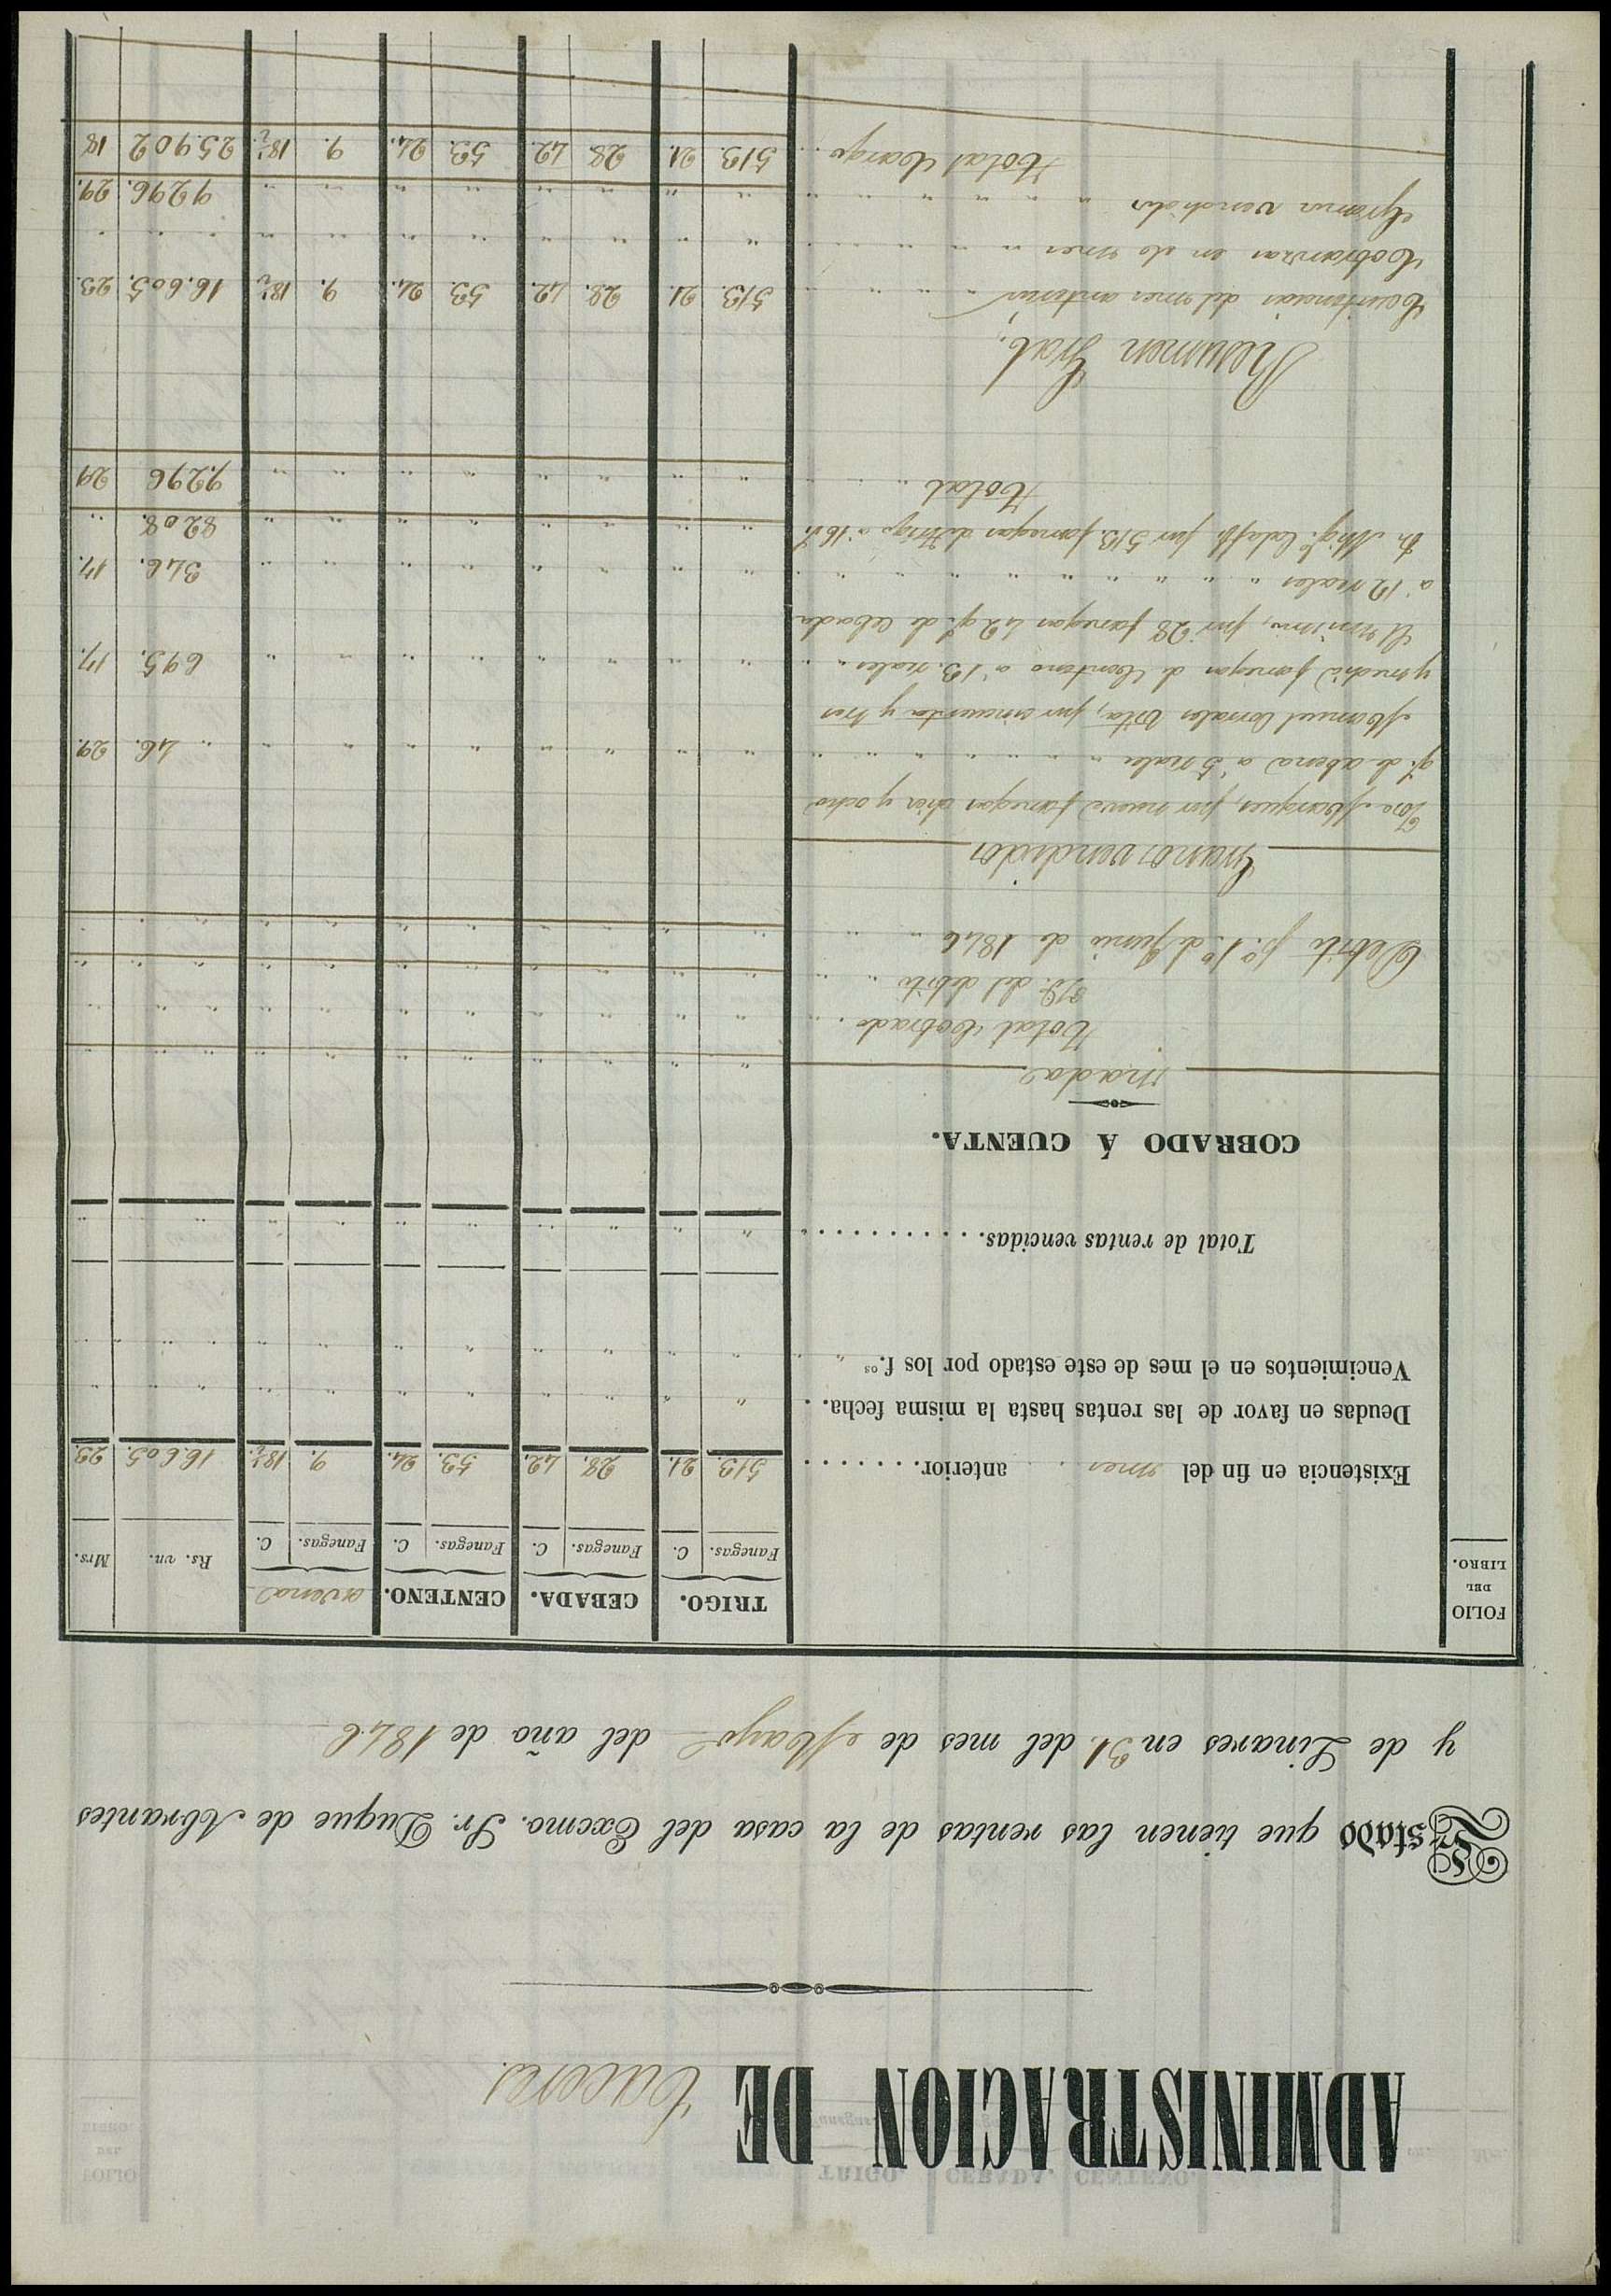 ADMINISTRACION DE Caceres.
Estado que tienen las rentas de la casa del Excmo. Sr. Duque de Abrantes
y de Linares en 31. del mes de Mayo del año de 1846
FOLIO DEL LIBRO. TRIGO. CEBADA. CENTENO. avena
Fanegas. C. Fanegas. C. Fanegas. C. Fanegas. C. Rs. vn. Mrs.
Existencia en fin del mes anterior. 513. 21. 28. 42. 53. 24. 9. 18½. 16.605. 23.
Deudas en favor de las rentas hasta la misma fecha.
Vencimientos en el mes de este estado por los f.os
Total de rentas vencidas.
COBRADO Á CUENTA.
nada
Total Cobrado
del debito
Debito p.a 1.o de Junio de 1846
Granos vendidos
Jose Marques, por nueve fanegas diez y ocho
q.s de abena a 5 reales 46. 29.
Manuel Corrales Vita, por cincuenta y tres
y media fanegas de Centeno a 13. reales 695. 17.
El mismo, por 28 fanegas 42 q.s de Cebada
a 12 reales 346. 17.
D. Mig.l por 513. fanegas de trigo a 16 8208.
Total 9.296 29
Resumen Gral.
Existencias del mes anterior 513. 21. 28. 42. 53. 24. 9. 18½. 16.605. 23.
Cobranzas en de mes
Granos vendidos 9296. 29.
Total Cargo 513. 21. 28 42. 53. 24. 9. 18½. 25.902 18